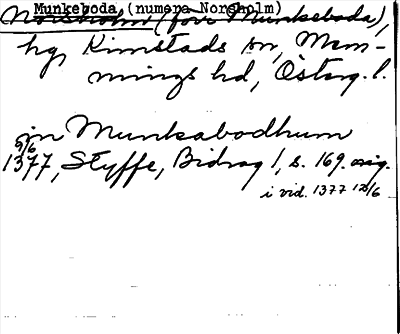 Munkeboda, (numera Norsholm)
Norsholm (förr Munkeboda),
hg, Kimstads sn, Mem-
mings hd, Österg. l.
jn Munkabodhum
9/6
1377, Styffe, Bidrag 1, s. 169. orig.
i vid. 1377 12/6